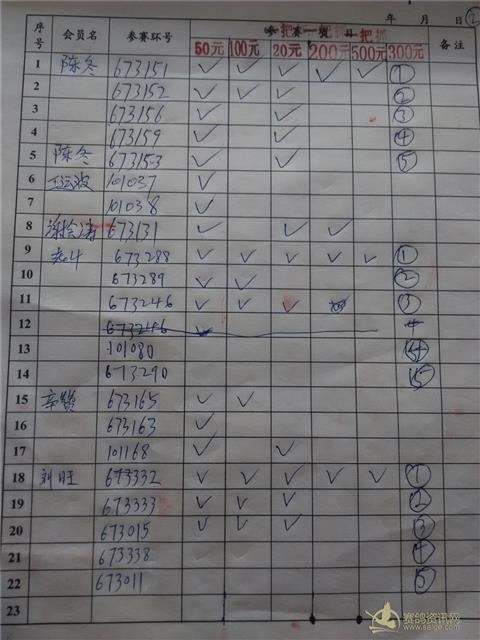 年 月 日 ②
序号 会员名 参赛环号 把 一 把抓 备注
50元 100元 20元 200元 500元 300元
1 陈冬 673151 ✓ ✓ ✓ ✓ ✓ ①
2 673152 ✓ ✓ ✓ ②
3 673156 ✓ ✓ ③
4 673159 ✓ ✓ ④
5 陈冬 673153 ✓ ✓ ⑤
6 王运波 101037 ✓
7 101038 ✓
8 673131 ✓ ✓ ✓
9 673288 ✓ ✓ ✓ ✓ ✓ ①
10 673289 ✓ ✓ ②
11 673246 ✓ ✓ ✓ ③
12 673246 ✓ 4
13 101080 ④
14 673290 ⑤
15 673165 ✓ ✓
16 673163 ✓
17 101168 ✓ ✓
18 刘旺 673332 ✓ ✓ ✓ ✓ ✓ ①
19 673333 ✓ ✓ ✓ ②
20 673015 ✓ ✓ ✓ ③
21 673338 ④
22 673011 ⑤
23
赛鸽资讯网
www.saige.com